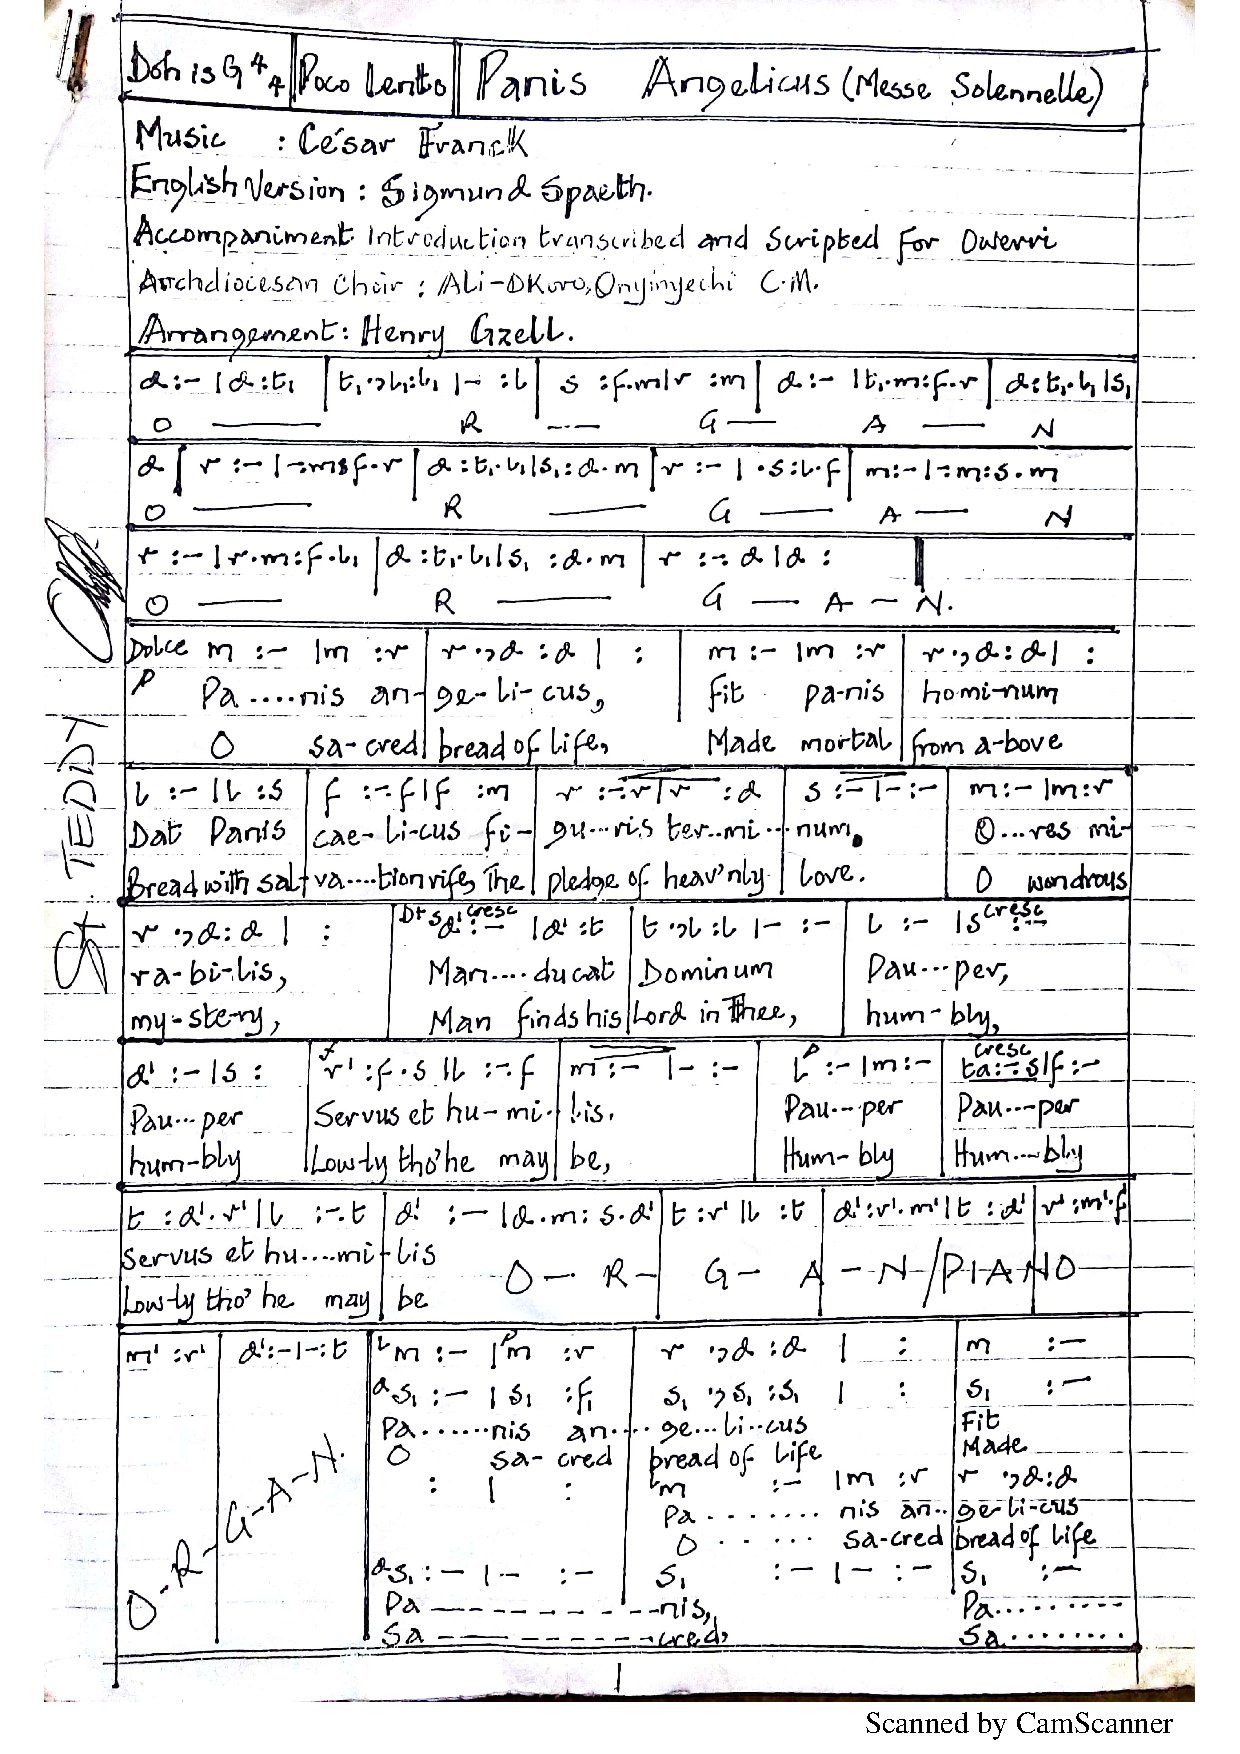 Doh is G 4/4 | Poco Lento | Panis Angelicus (Messe Solennelle)
Music : César Franck
English Version : Sigmund Spaeth.
Accompaniment Introduction transcribed and Scripted for Owerri
Archdiocesan Choir : Ali-Okoro, Onyinyechi C.M.
Arrangement : Henry Gzell.
d :- | d : t₁ | t₁ ., l₁ : l₁ | - : l | s : f.m | r : m | d :- | t₁.m : f.r | d : t₁.l₁ | s₁
O —— R --- G — A — N
d | r :- | - : m s f.r | d : t₁.l₁ | s₁ : d.m | r :- | .s : l.f | m :- | - : m : s.m
O —— R —— G — A — N
r :- | r.m : f.l₁ | d : t₁.l₁ | s₁ : d.m | r :-. d | d :
O —— R —— G — A — N.
Dolce m :- | m : r | r ., d : d | : m :- | m : r | r ., d : d | :
P Pa.....nis an- ge-li-cus, fit pa-nis homi-num
O sa-cred bread of life, Made mortal from a-bove
l :- | l : s | f :-. f | f : m | r :-. r | r : d | s :- | - :- | m :- | m : r
Dat Panis cae-li-cus fi- gu...ris ter..mi... num. O...res mi-
Bread with sal-va....tion rife, The pledge of heav'nly love. O wondrous
r ., d : d | : Dt s d' cresc :- | d' : t | t ., l : l | - :- | l :- | s cresc :-
ra-bi-lis, Man....ducat Dominum Pau...per,
my-ste-ry, Man finds his Lord in Thee, hum-bly,
d' :- | s : f r' : f.s | l :-. f | m :- | - :- | p l :- | m :- cresc ta :-. s | f :-
Pau...per Servus et hu-mi- lis. Pau...per Pau...per
hum-bly Low-ly tho' he may be, Hum-bly Hum...bly
t : d'.r' | l :-. t | d' :- | d.m : s.d' | t : r' | l : t | d' : r'.m' | t : d' | r' : m'.f
Servus et hu....mi-lis O — R - G - A - N/PIANO
Low-ly tho' he may be
m' : r' | d' :- | - : t | l m :- | p m : r | r ., d : d | : m :-
d s₁ :- | s₁ : f₁ | s₁ ., s₁ : s₁ | : s₁ :-
Pa.......nis an.... ge...li-cus Fit
O sa-cred bread of life Made
: | : l m :- | m : r | r ., d : d
Pa........ nis an.. ge-li-cus
O ...... sa-cred bread of life
d s₁ :- | - :- | s₁ :- | - :- | s₁ :-
Pa ---------nis, Pa.........
Sa ---------cred, Sa........
O-R-G-A-N.
St. TEDDY
1
Scanned by CamScanner